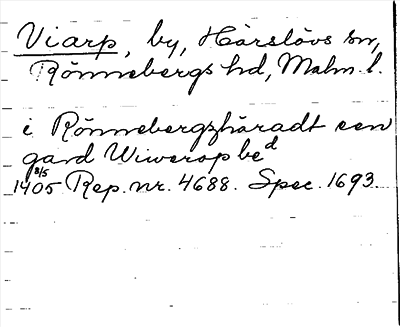 Viarp, by, Härslövs sn,
Rönnebergs hd, Malm. l.
i Rönnebergzhäradt een
gard Wiwerop be d
8/5
1405 Rep. nr. 4688. Spec. 1693.